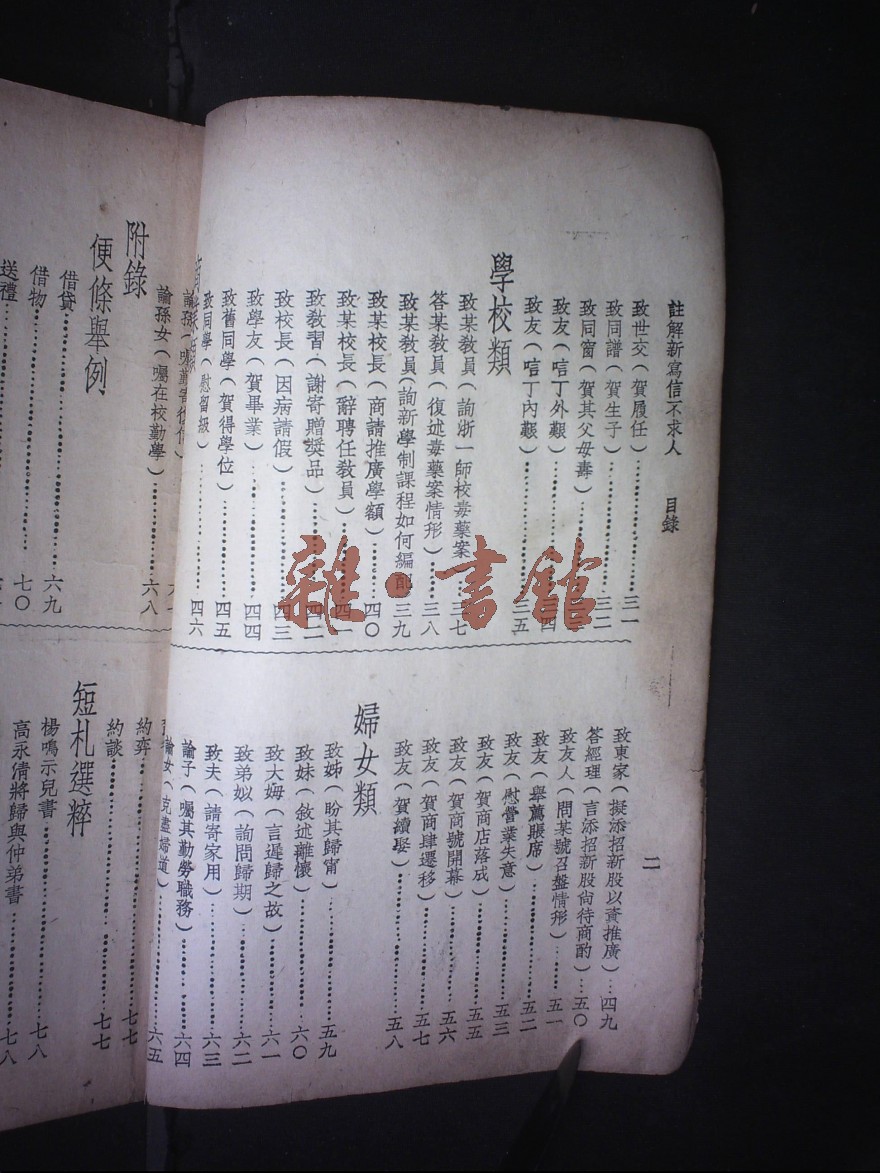 註解新寫信不求人 目錄
二
致世交(賀履任)三一
致同譜(賀生子)三二
致同窗(賀其父母壽)
致友(唁丁外艱)三四
致友(唁丁內艱)三五
學校類
致某教員(詢浙一師校毒藥案)三七
答某教員(復述毒藥案情形)三八
致某教員(詢新學制課程如何編配)三九
致某校長(商請推廣學額)四〇
致某校長(辭聘任教員)四一
致教習(謝寄贈獎品)四二
致校長(因病請假)四三
致學友(賀畢業)四四
致舊同學(賀得學位)四五
致同學(慰留級)四六
致東家(擬添招新股以資推廣)四九
答經理(言添招新股尚待商酌)五〇
致友人(問某號召盤情形)五一
致友(舉薦賬席)五二
致友(慰營業失意)五三
致友(賀商店落成)五五
致友(賀商號開幕)五六
致友(賀商肆遷移)五七
致友(賀續娶)五八
婦女類
致姊(盼其歸甯)五九
致妹(敘述離懷)六〇
致大姆(言遲歸之故)六一
致弟姒(詢問歸期)六二
致夫(請寄家用)六三
諭子(囑其勤勞職務)六四
諭女(克盡婦道)六五
諭孫女(囑在校勤學)六八
附錄
便條舉例
借貸六九
借物七〇
送禮
約弈七七
約談七七
短札選粹
楊鳴示兒書七八
高永倩將歸與仲弟書七八
雜·書館